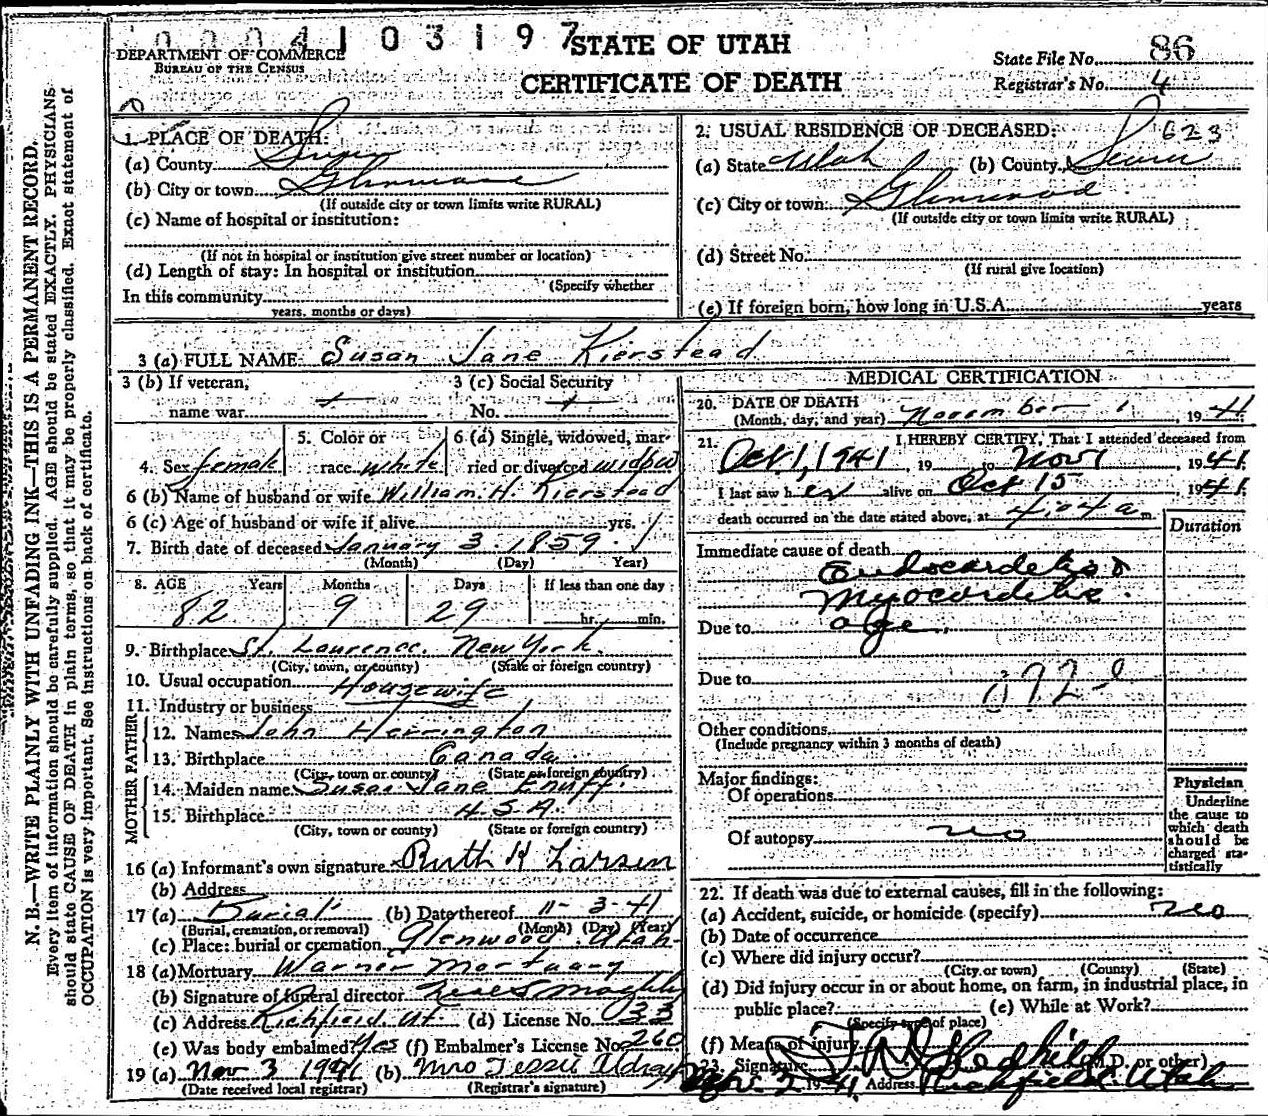 0004103197
DEPARTMENT OF COMMERCE
BUREAU OF THE CENSUS
STATE OF UTAH
CERTIFICATE OF DEATH
State File No. 86
Registrar's No. 4
1. PLACE OF DEATH:
(a) County Sevier
(b) City or town Glenwood
(If outside city or town limits write RURAL)
(c) Name of hospital or institution:
(If not in hospital or institution give street number or location)
(d) Length of stay: In hospital or institution
(Specify whether
In this community
years, months or days)
2. USUAL RESIDENCE OF DECEASED: 623
(a) State Utah (b) County Sevier
(c) City or town: Glenwood
(If outside city or town limits write RURAL)
(d) Street No.
(If rural give location)
(e) If foreign born, how long in U.S.A. years
3 (a) FULL NAME Susan Jane Kierstead
3 (b) If veteran,
name war
3 (c) Social Security
No.
4. Sex female
5. Color or
race white
6 (a) Single, widowed, mar-
ried or divorced widow
6 (b) Name of husband or wife William H. Kierstead
6 (c) Age of husband or wife if alive yrs.
7. Birth date of deceased January 3 1859
(Month) (Day) Year)
8. AGE Years Months Days If less than one day
82 9 29 hr. min.
9. Birthplace St. Lawrence. New York.
(City, town, or county) (State or foreign country)
10. Usual occupation Housewife
11. Industry or business
FATHER
12. Name John Herrington
13. Birthplace Canada
(City, town or county) (State or foreign country)
MOTHER
14. Maiden name Susan Jane
15. Birthplace U.S.A.
(City, town or county) (State or foreign country)
16 (a) Informant's own signature Ruth K Larsen
(b) Address
17 (a) Burial (b) Date thereof 11-3-41
(Burial, cremation, or removal) (Month) (Day) (Year)
(c) Place: burial or cremation Glenwood Utah
18 (a) Mortuary Warner Mortuary
(b) Signature of funeral director
(c) Address Richfield. Ut (d) License No. 33
(e) Was body embalmed? Yes (f) Embalmer's License No. 260
19 (a) Nov 3 1941 (b) Mrs Tessie
(Date received local registrar) (Registrar's signature)
MEDICAL CERTIFICATION
20. DATE OF DEATH
(Month, day, and year) November 1 1941
21. I HEREBY CERTIFY, That I attended deceased from
Oct 1, 1941, 19 to Nov 1 1941
I last saw her alive on Oct 15 1941
death occurred on the date stated above, at 4:04 a m
Duration
Immediate cause of death
Endocarditis &
Myocarditis.
Due to age.
Due to
Other conditions
(Include pregnancy within 3 months of death)
Major findings:
Of operations
Of autopsy no
Physician
Underline
the cause to
which death
should be
charged sta-
tistically
22. If death was due to external causes, fill in the following:
(a) Accident, suicide, or homicide (specify) no
(b) Date of occurrence
(c) Where did injury occur?
(City or town) (County) (State)
(d) Did injury occur in or about home, on farm, in industrial place, in
public place? (e) While at Work?
(Specify type of place)
(f) Means of injury
23. Signature (M.D. or other)
Nov. 2 1941. Address Richfield Utah
N. B.—WRITE PLAINLY WITH UNFADING INK—THIS IS A PERMANENT RECORD.
Every item of information should be carefully supplied. AGE should be stated EXACTLY. PHYSICIANS
should state CAUSE OF DEATH in plain terms, so that it may be properly classified. Exact statement of
OCCUPATION is very important. See instructions on back of certificate.